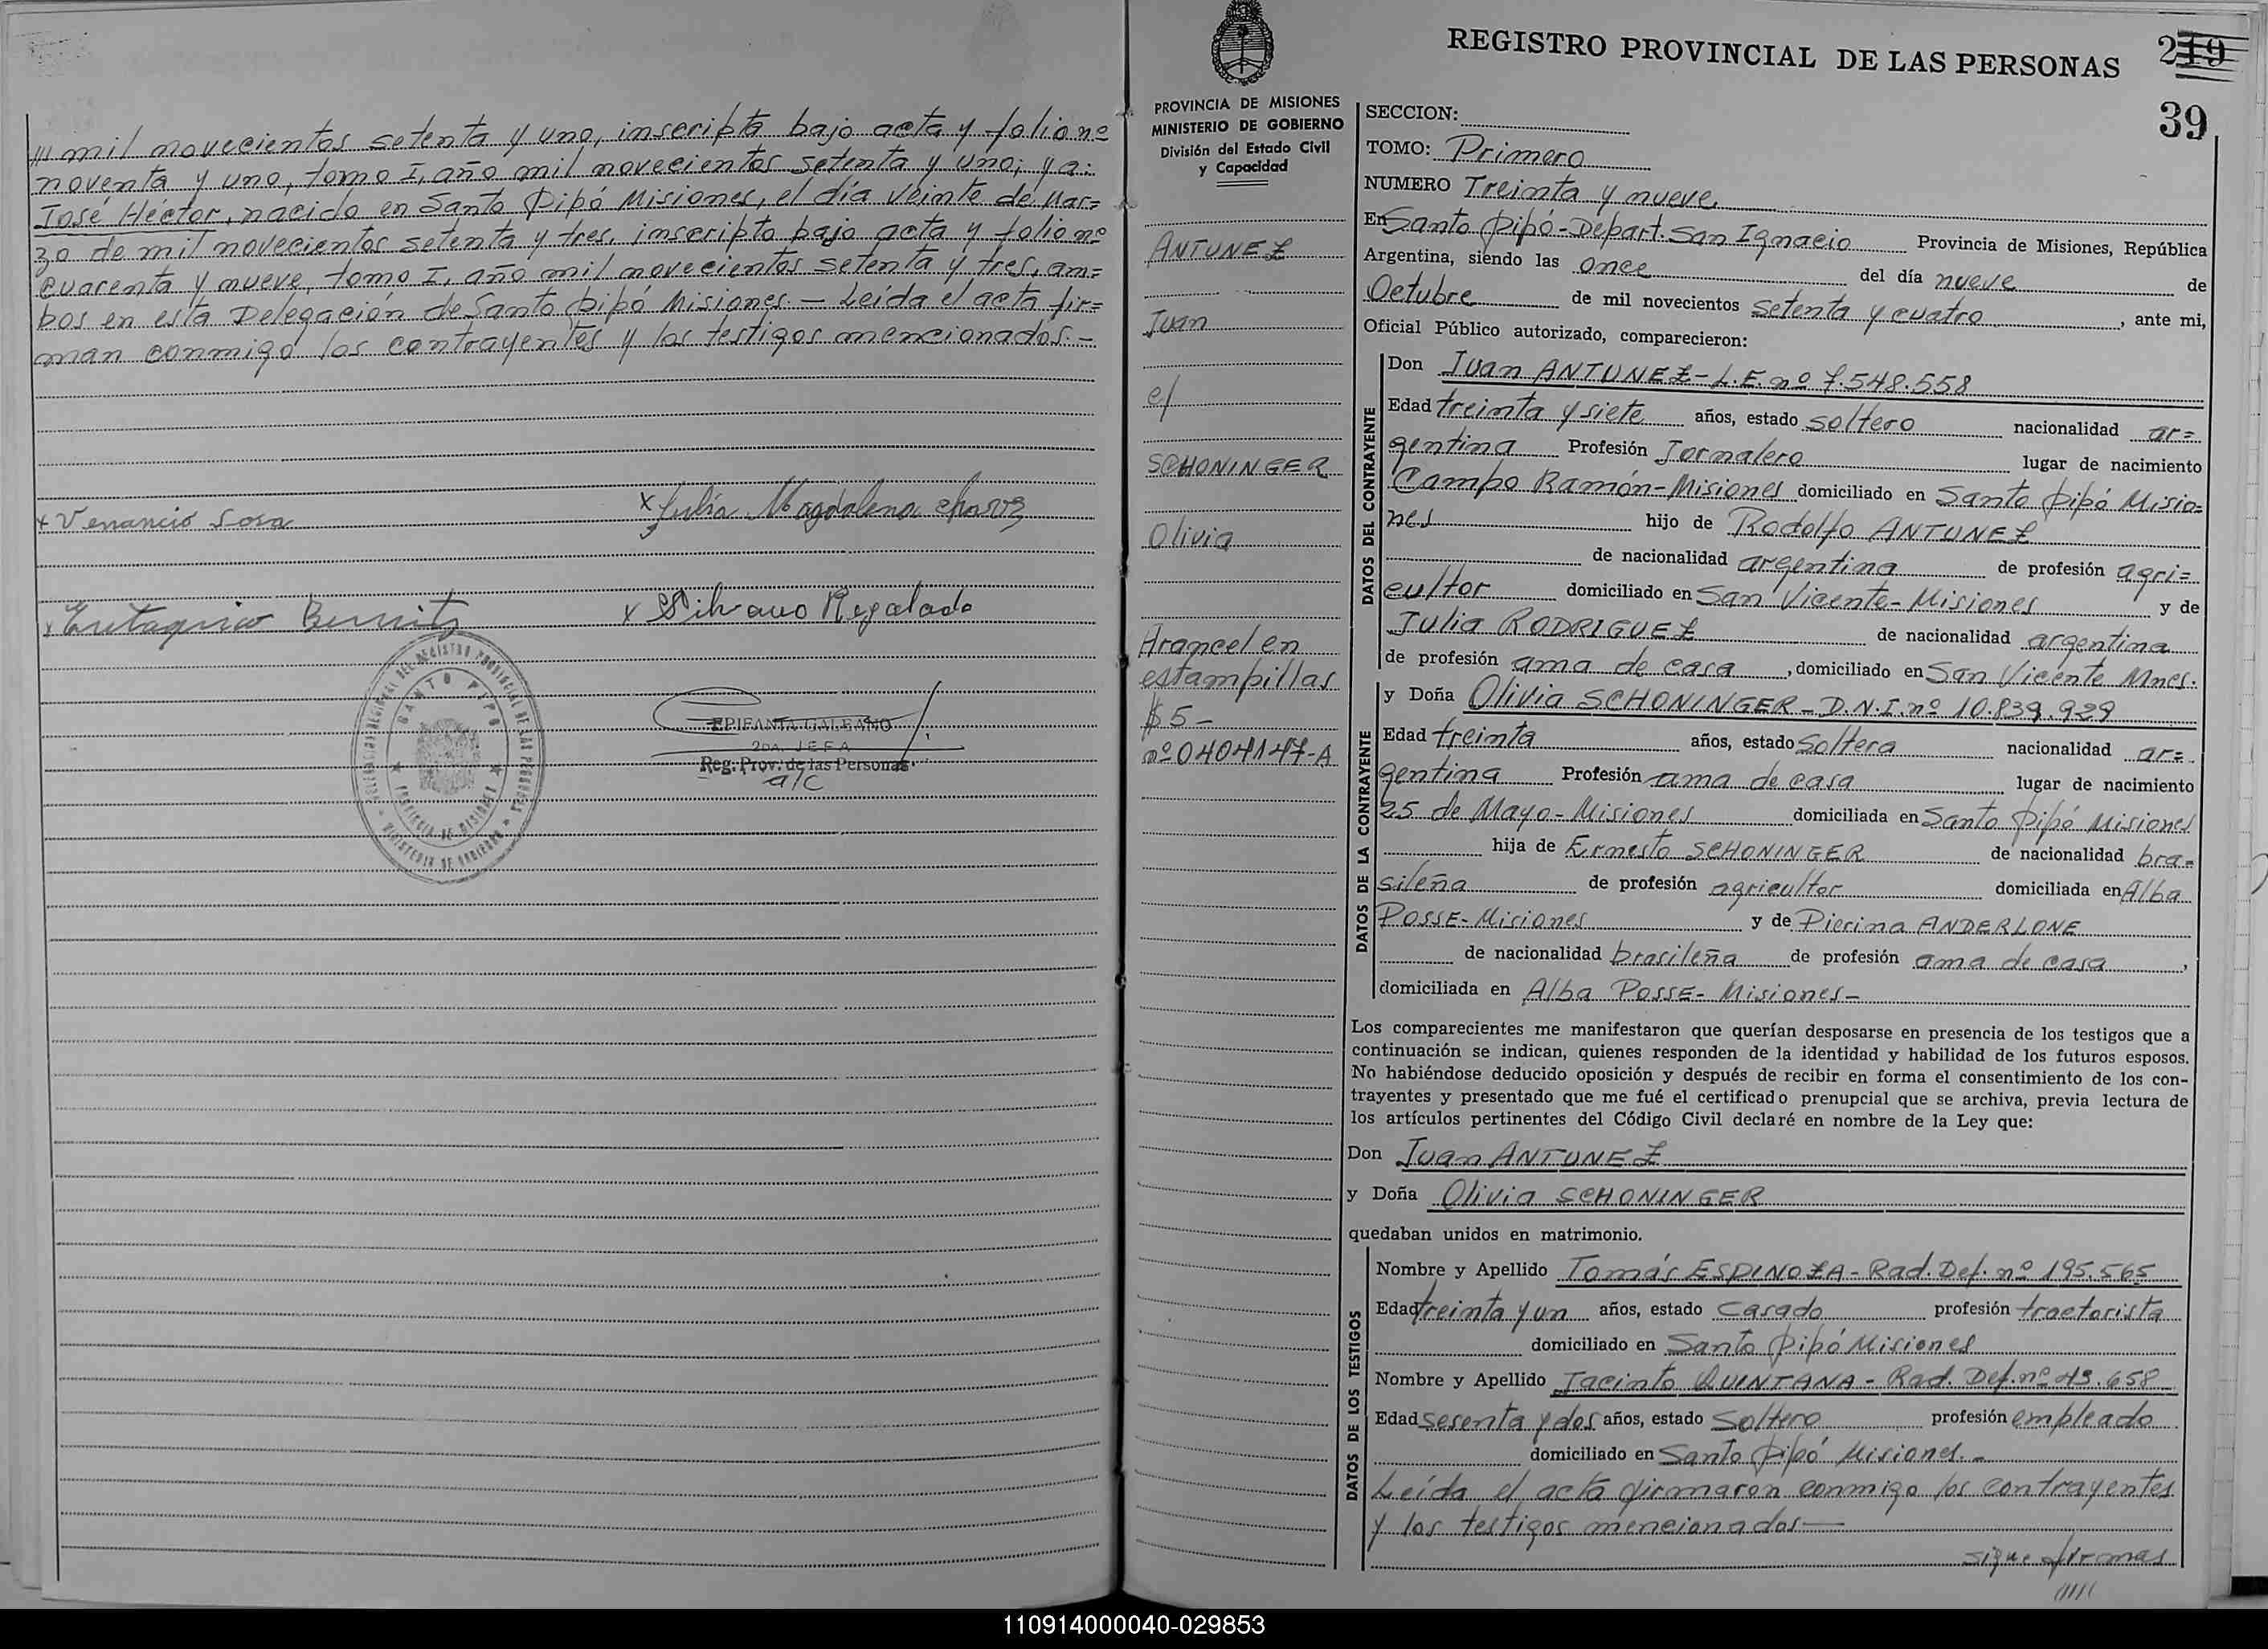 /// mil novecientos setenta y uno, inscripta bajo acta y folio nº
noventa y uno, tomo I, año mil novecientos setenta y uno; y a:
José Héctor, nacido en Santo Pipó Misiones, el día veinte de Mar=
zo de mil novecientos setenta y tres, inscripto bajo acta y folio nº
cuarenta y nueve, tomo I, año mil novecientos setenta y tres, am=
bos en esta Delegación de Santo Pipó Misiones.— Leída el acta fir=
man conmigo los contrayentes y los testigos mencionados.—
x Venancio Sosa
x Julia Magdalena
x Silvano Regalado
EPIFANIA GALEANO
2DA. JEFA
Reg. Prov. de las Personas
a/c
SANTO PIPO
PROVINCIA DE MISIONES
MINISTERIO DE GOBIERNO
REGISTRO PROVINCIAL DE LAS PERSONAS
219
39
PROVINCIA DE MISIONES
MINISTERIO DE GOBIERNO
División del Estado Civil
y Capacidad
ANTUNEZ
Juan
c/
SCHONINGER
Olivia
Arancel en
estampillas
$ 5-
nº 0404147-A
SECCION:
TOMO: Primero
NUMERO Treinta y nueve
En Santo Pipó-Depart. San Ignacio Provincia de Misiones, República
Argentina, siendo las once del día nueve de
Octubre de mil novecientos setenta y cuatro, ante mi,
Oficial Público autorizado, comparecieron:
DATOS DEL CONTRAYENTE
Don Juan ANTUNEZ-L.E. nº 7.548.558
Edad treinta y siete años, estado soltero nacionalidad ar=
gentina Profesión Jornalero lugar de nacimiento
Campo Ramón-Misiones domiciliado en Santo Pipó Misio=
nes hijo de Rodolfo ANTUNEZ
de nacionalidad argentina de profesión agri=
cultor domiciliado en San Vicente-Misiones y de
Julia RODRIGUEZ de nacionalidad argentina
de profesión ama de casa, domiciliado en San Vicente Mnes.
DATOS DE LA CONTRAYENTE
y Doña Olivia SCHONINGER-D.N.I. nº 10.839.929
Edad treinta años, estado Soltera nacionalidad ar=
gentina Profesión ama de casa lugar de nacimiento
25 de Mayo-Misiones domiciliada en Santo Pipó Misiones
hija de Ernesto SCHONINGER de nacionalidad bra=
sileña de profesión agricultor domiciliada en Alba
POSSE-Misiones y de Pierina ANDERLONE
de nacionalidad brasileña de profesión ama de casa,
domiciliada en Alba POSSE-Misiones-
Los comparecientes me manifestaron que querían desposarse en presencia de los testigos que a
continuación se indican, quienes responden de la identidad y habilidad de los futuros esposos.
No habiéndose deducido oposición y después de recibir en forma el consentimiento de los con-
trayentes y presentado que me fué el certificado prenupcial que se archiva, previa lectura de
los artículos pertinentes del Código Civil declaré en nombre de la Ley que:
Don Juan ANTUNEZ
y Doña Olivia SCHONINGER
quedaban unidos en matrimonio.
DATOS DE LOS TESTIGOS
Nombre y Apellido Tomás ESPINOZA-Rad. Def. nº 195.565
Edad treinta y un años, estado Casado profesión tractorista
domiciliado en Santo Pipó Misiones
Nombre y Apellido Jacinto QUINTANA-Rad. Def. nº 43.658
Edad sesenta y dos años, estado Soltero profesión empleado
domiciliado en Santo Pipó Misiones.-
Leída el acta firmaron conmigo los contrayentes
y los testigos mencionados—
sigue firmas
/////
110914000040-029853